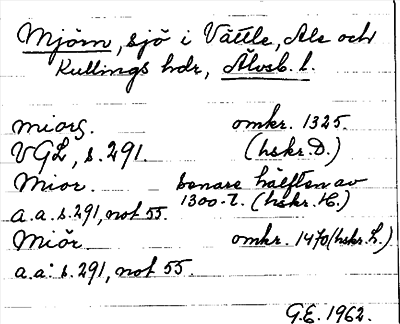 Mjörn, sjö i Vättle, Ale och
Kullings hdr, Älvsb. l.
miors. omkr. 1325.
VGL, s. 291. (hskr. D.)
Mior. senare hälften av
a.a. s. 291, not 55. 1300-t. (hskr. H.)
Miör. omkr. 1470 (hskr. L.)
a.a. s. 291, not 55.
G.E. 1962.